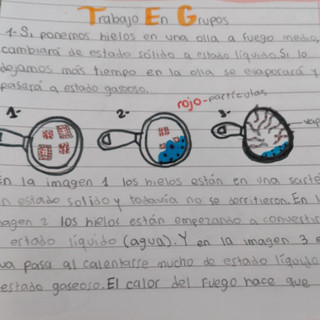 Trabajo En Grupos
1-Si ponemos hielos en una olla a fuego medio,
cambiara de estado sólido a estado líquido. Si lo
dejamos más tiempo en la olla se evaporará y
pasará a estado gaseoso.
rojo-partículas
1- 2- 3-
En la imagen 1 los hielos están en una
en estado solido y todavía no se derritieron. En l
imagen 2 los hielos están empezando a
estado líquido (agua). Y en la imagen 3 e
pasa al calentarse mucho de estado líquido
estado gaseoso. El calor del fuego hace que